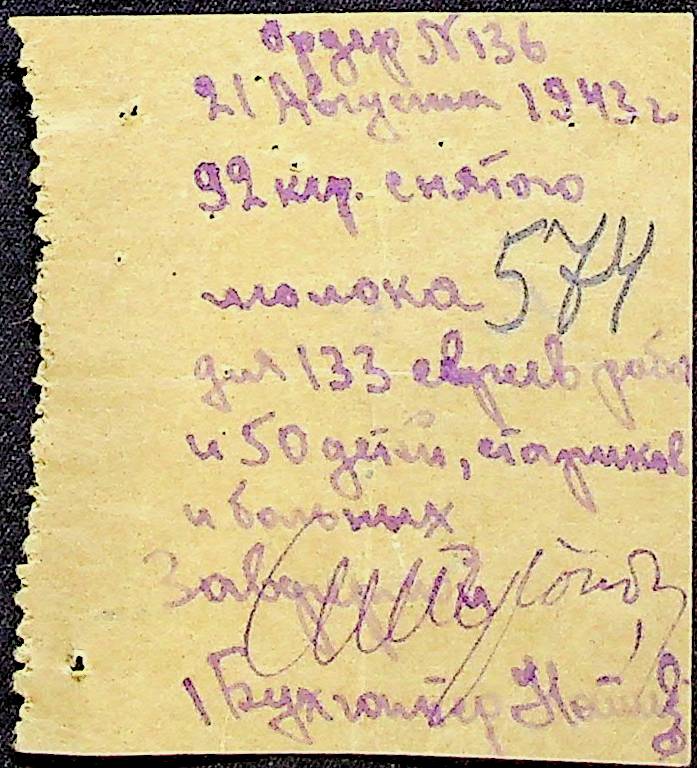 Ордер N 136
21 Августа 1943 г
92 кгр. снятого
молока 574
для 133 евреев рабо
и 50 детей, стариков
и больных
Заведующий
Бухгалтер